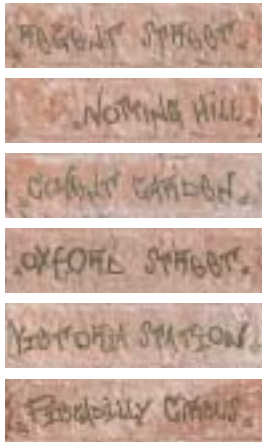 REGENT STREET.
.NOTTING HILL.
.COVENT GARDEN.
.OXFORD STREET.
VICTORIA STATION.
.PICCADILLY CIRCUS.